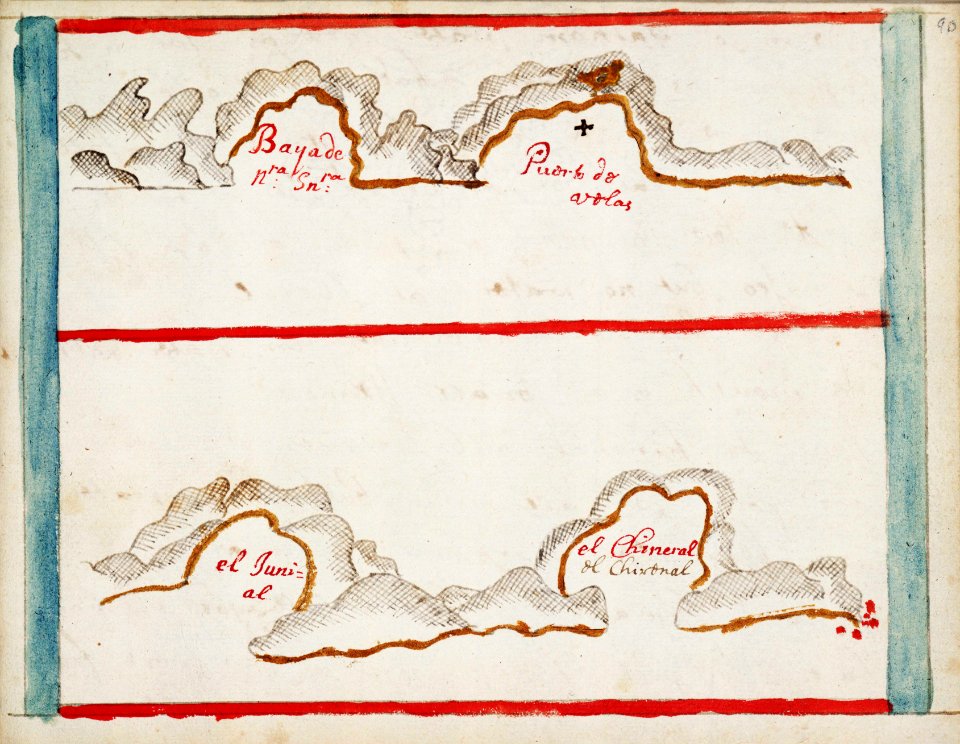 90
Baya de
nra: Snra:
Puerto de
velas
el Juni=
al
el Chineral
el Chirenal